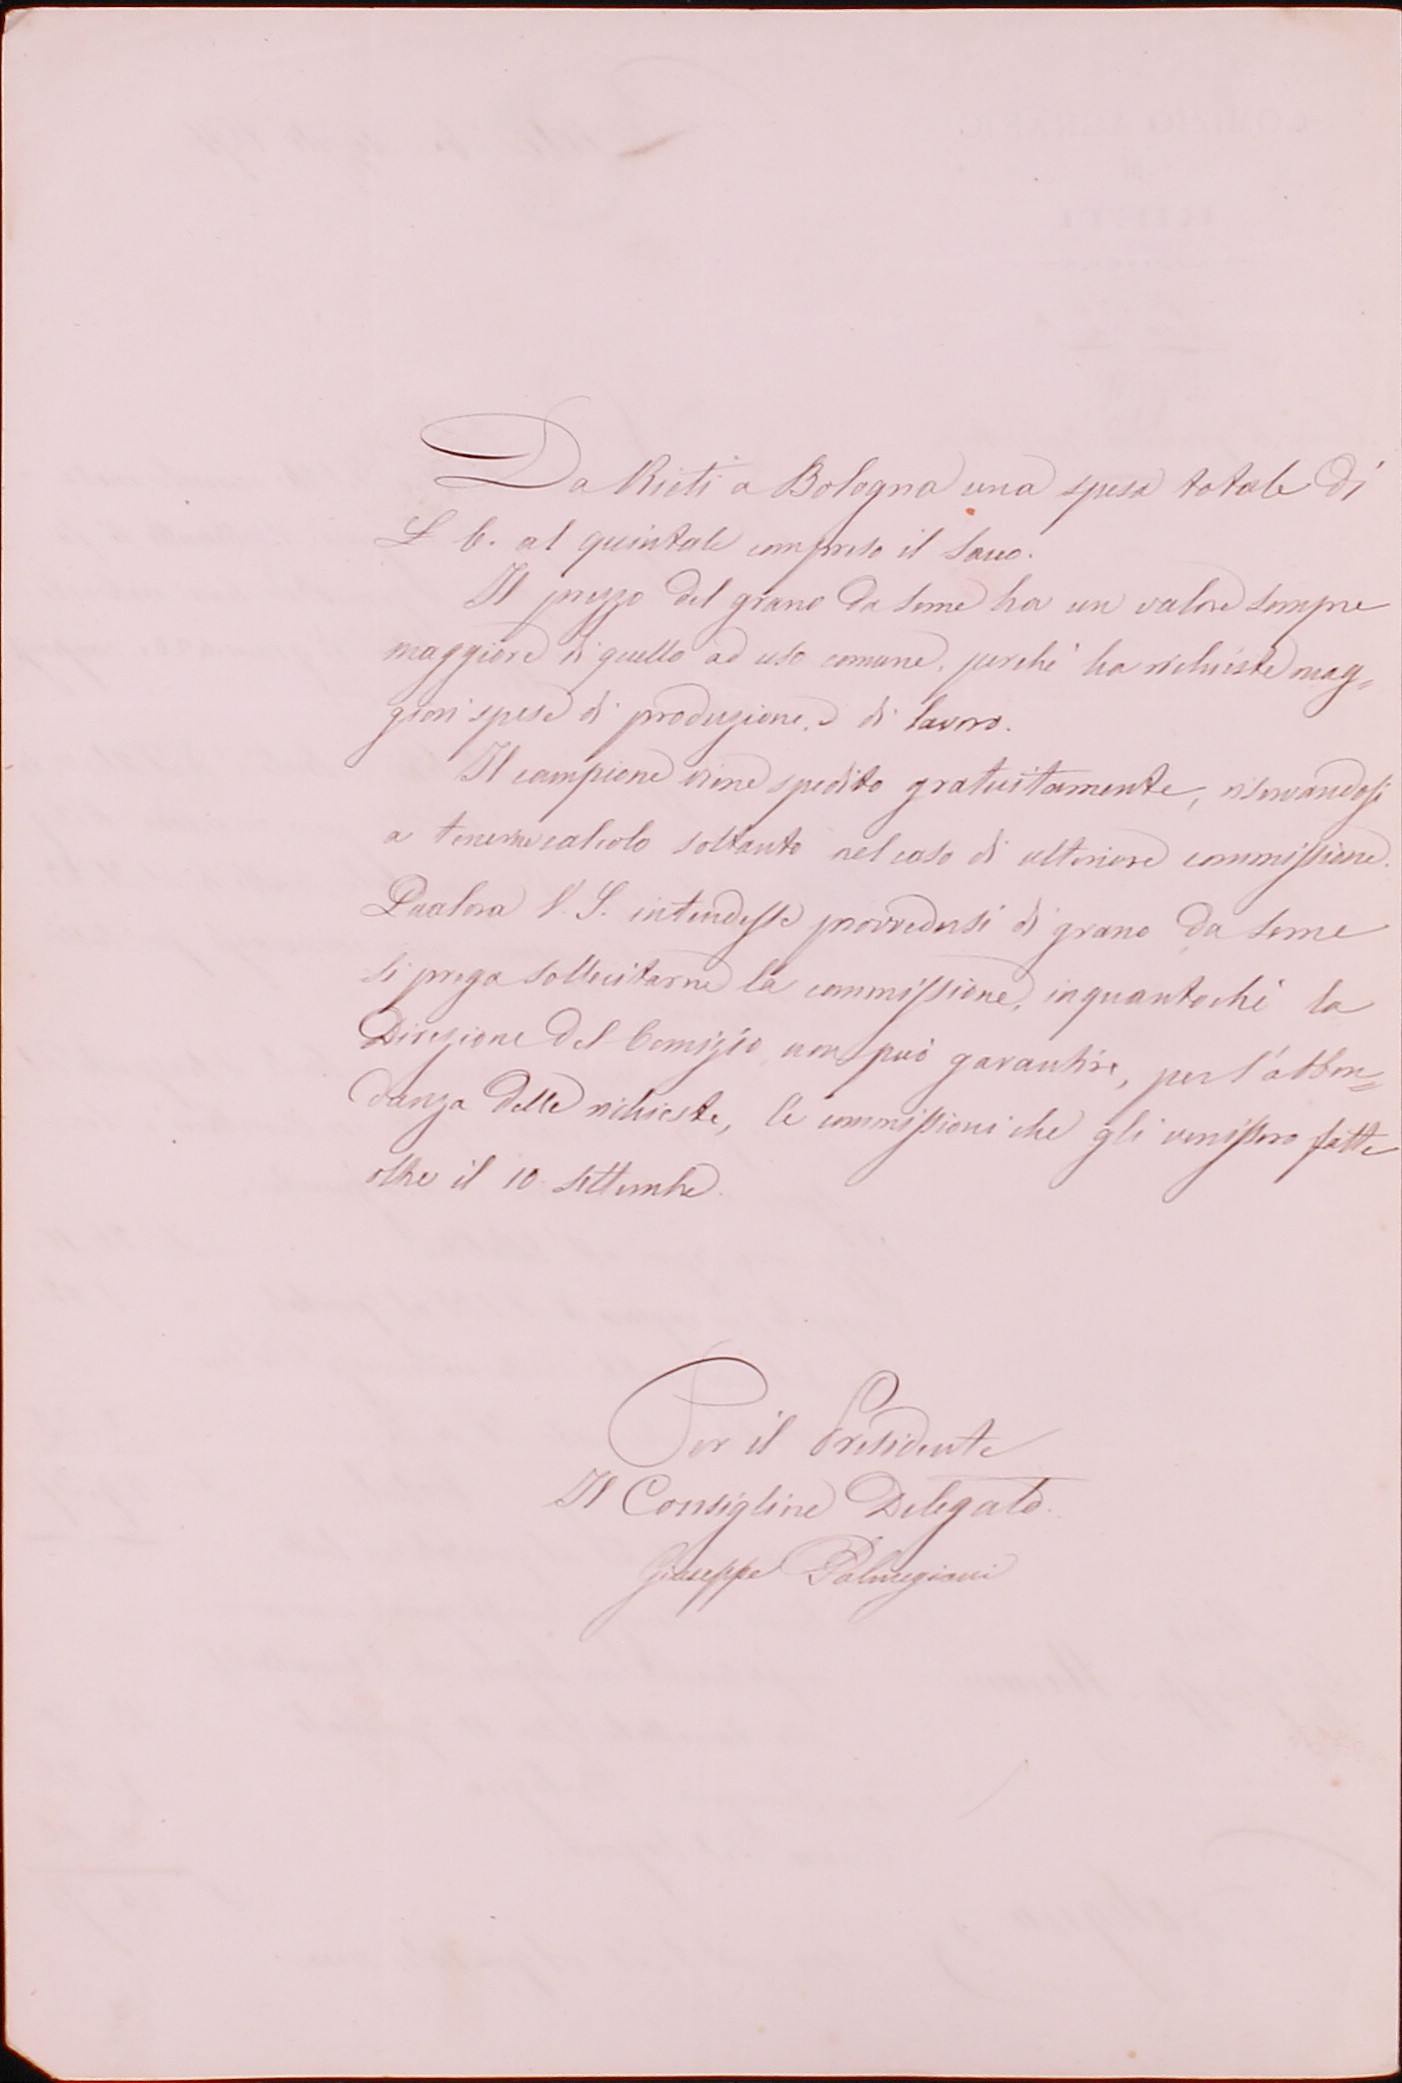 Da Rieti a Bologna una spesa totale di
L 6. al quintale compreso il sacco.
Il prezzo del grano da seme ha un valore sempre
maggiore di quello ad uso comune, perchè ha richieste mag=
giori spese di produzione, e di lavoro.
Il campione viene spedito gratuitamente, riservandosi
a tenerne calcolo soltanto nel caso di ulteriore commissione.
Qualora V. S. intendesse provvedersi di grano da seme
si prega sollecitarne la commissione, inquantochè la
Direzione del Comizio non può garantire, per l'abbon=
danza delle richieste, le commissioni che gli venissero fatte
oltre il 10 settembre.
Per il Presidente
Il Consigliere Delegato
Giuseppe Palmegiani